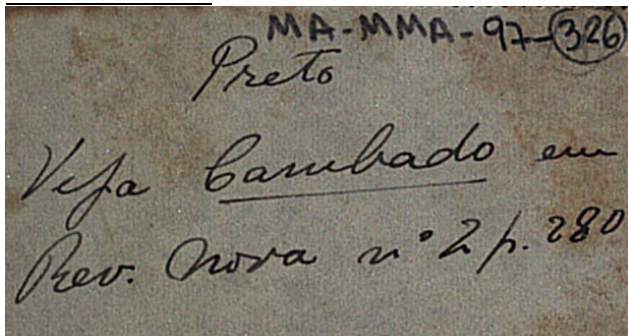 MA-MMA-97-326
Preto
Veja Cambado em
Rev. Nova nº 2 p. 280